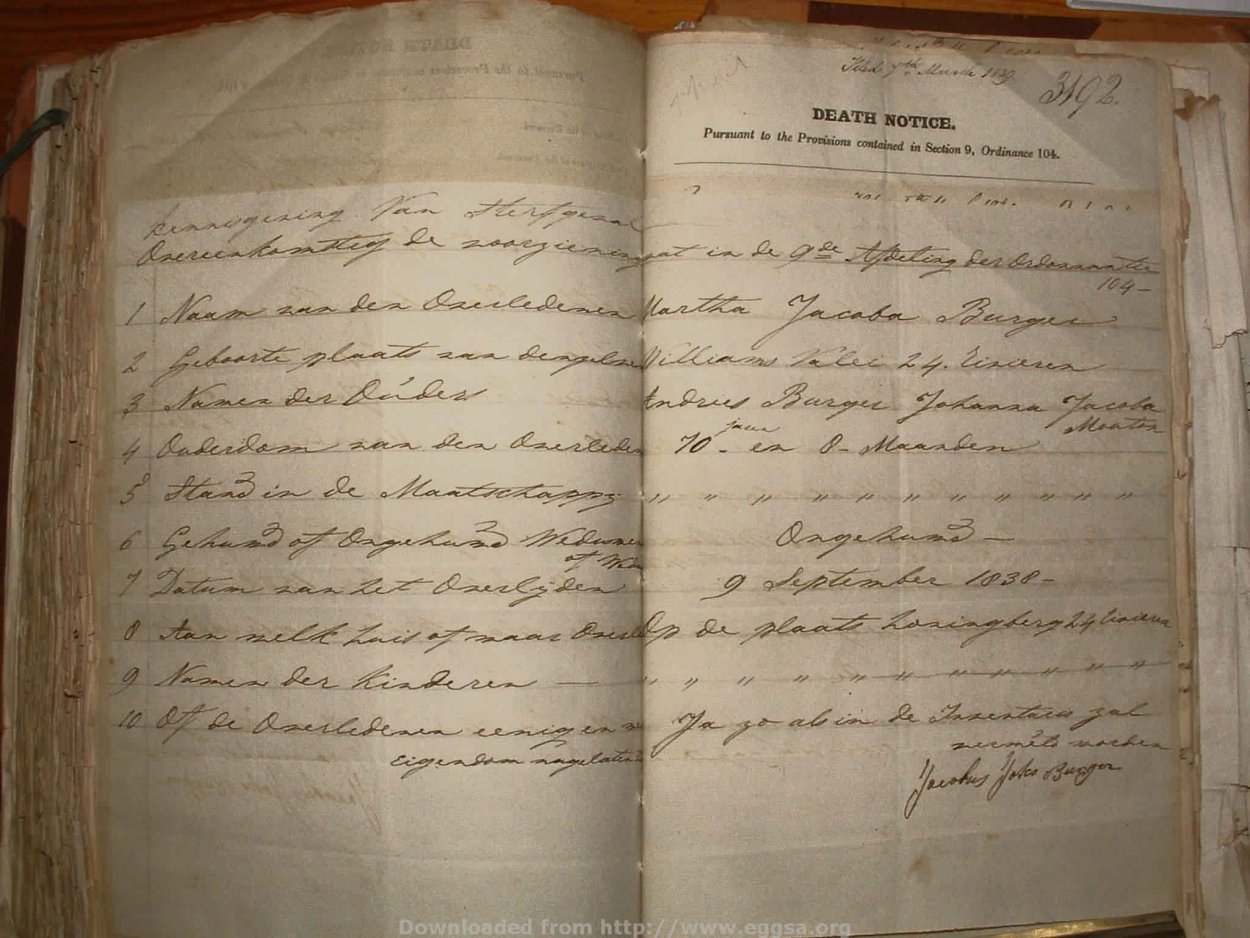 Filed 7th March 1839
3192.
DEATH NOTICE.
Pursuant to the Provisions contained in Section 9, Ordinance 104.
Kennisgeving Van Sterfgeval
Overeenkomstig de voorziening vat in de 9de Afdeling der Ordonnantie
104-
1 Naam van den Overledenen Martha Jacoba Burger
2 Geboorte plaats van denzelven Williams Valei 24. Rivieren
3 Namen der Ouders Andries Burger Johanna Jacoba
Mouton
4 Ouderdom van den Overleden 70 jaren en 8 - Maanden
5 Stand in de Maatschappy " " " " " " " " " " "
6 Gehuwd of Ongehuwd Weduwen Ongehuwd -
of Wed
7 Datum van het Overlyden 9 September 1838-
8 Aan welk huis of waar Overle Op de plaats Koningberg 24 Rivieren
9 Namen der Kinderen - " " " " " " " " " " "
10 Of de Overledenen eenig en Ja zo als in de Inventaris zal
eigendom nagelaten vermeld worden
Jacobus Johs Burger
Downloaded from http://www.eggsa.org